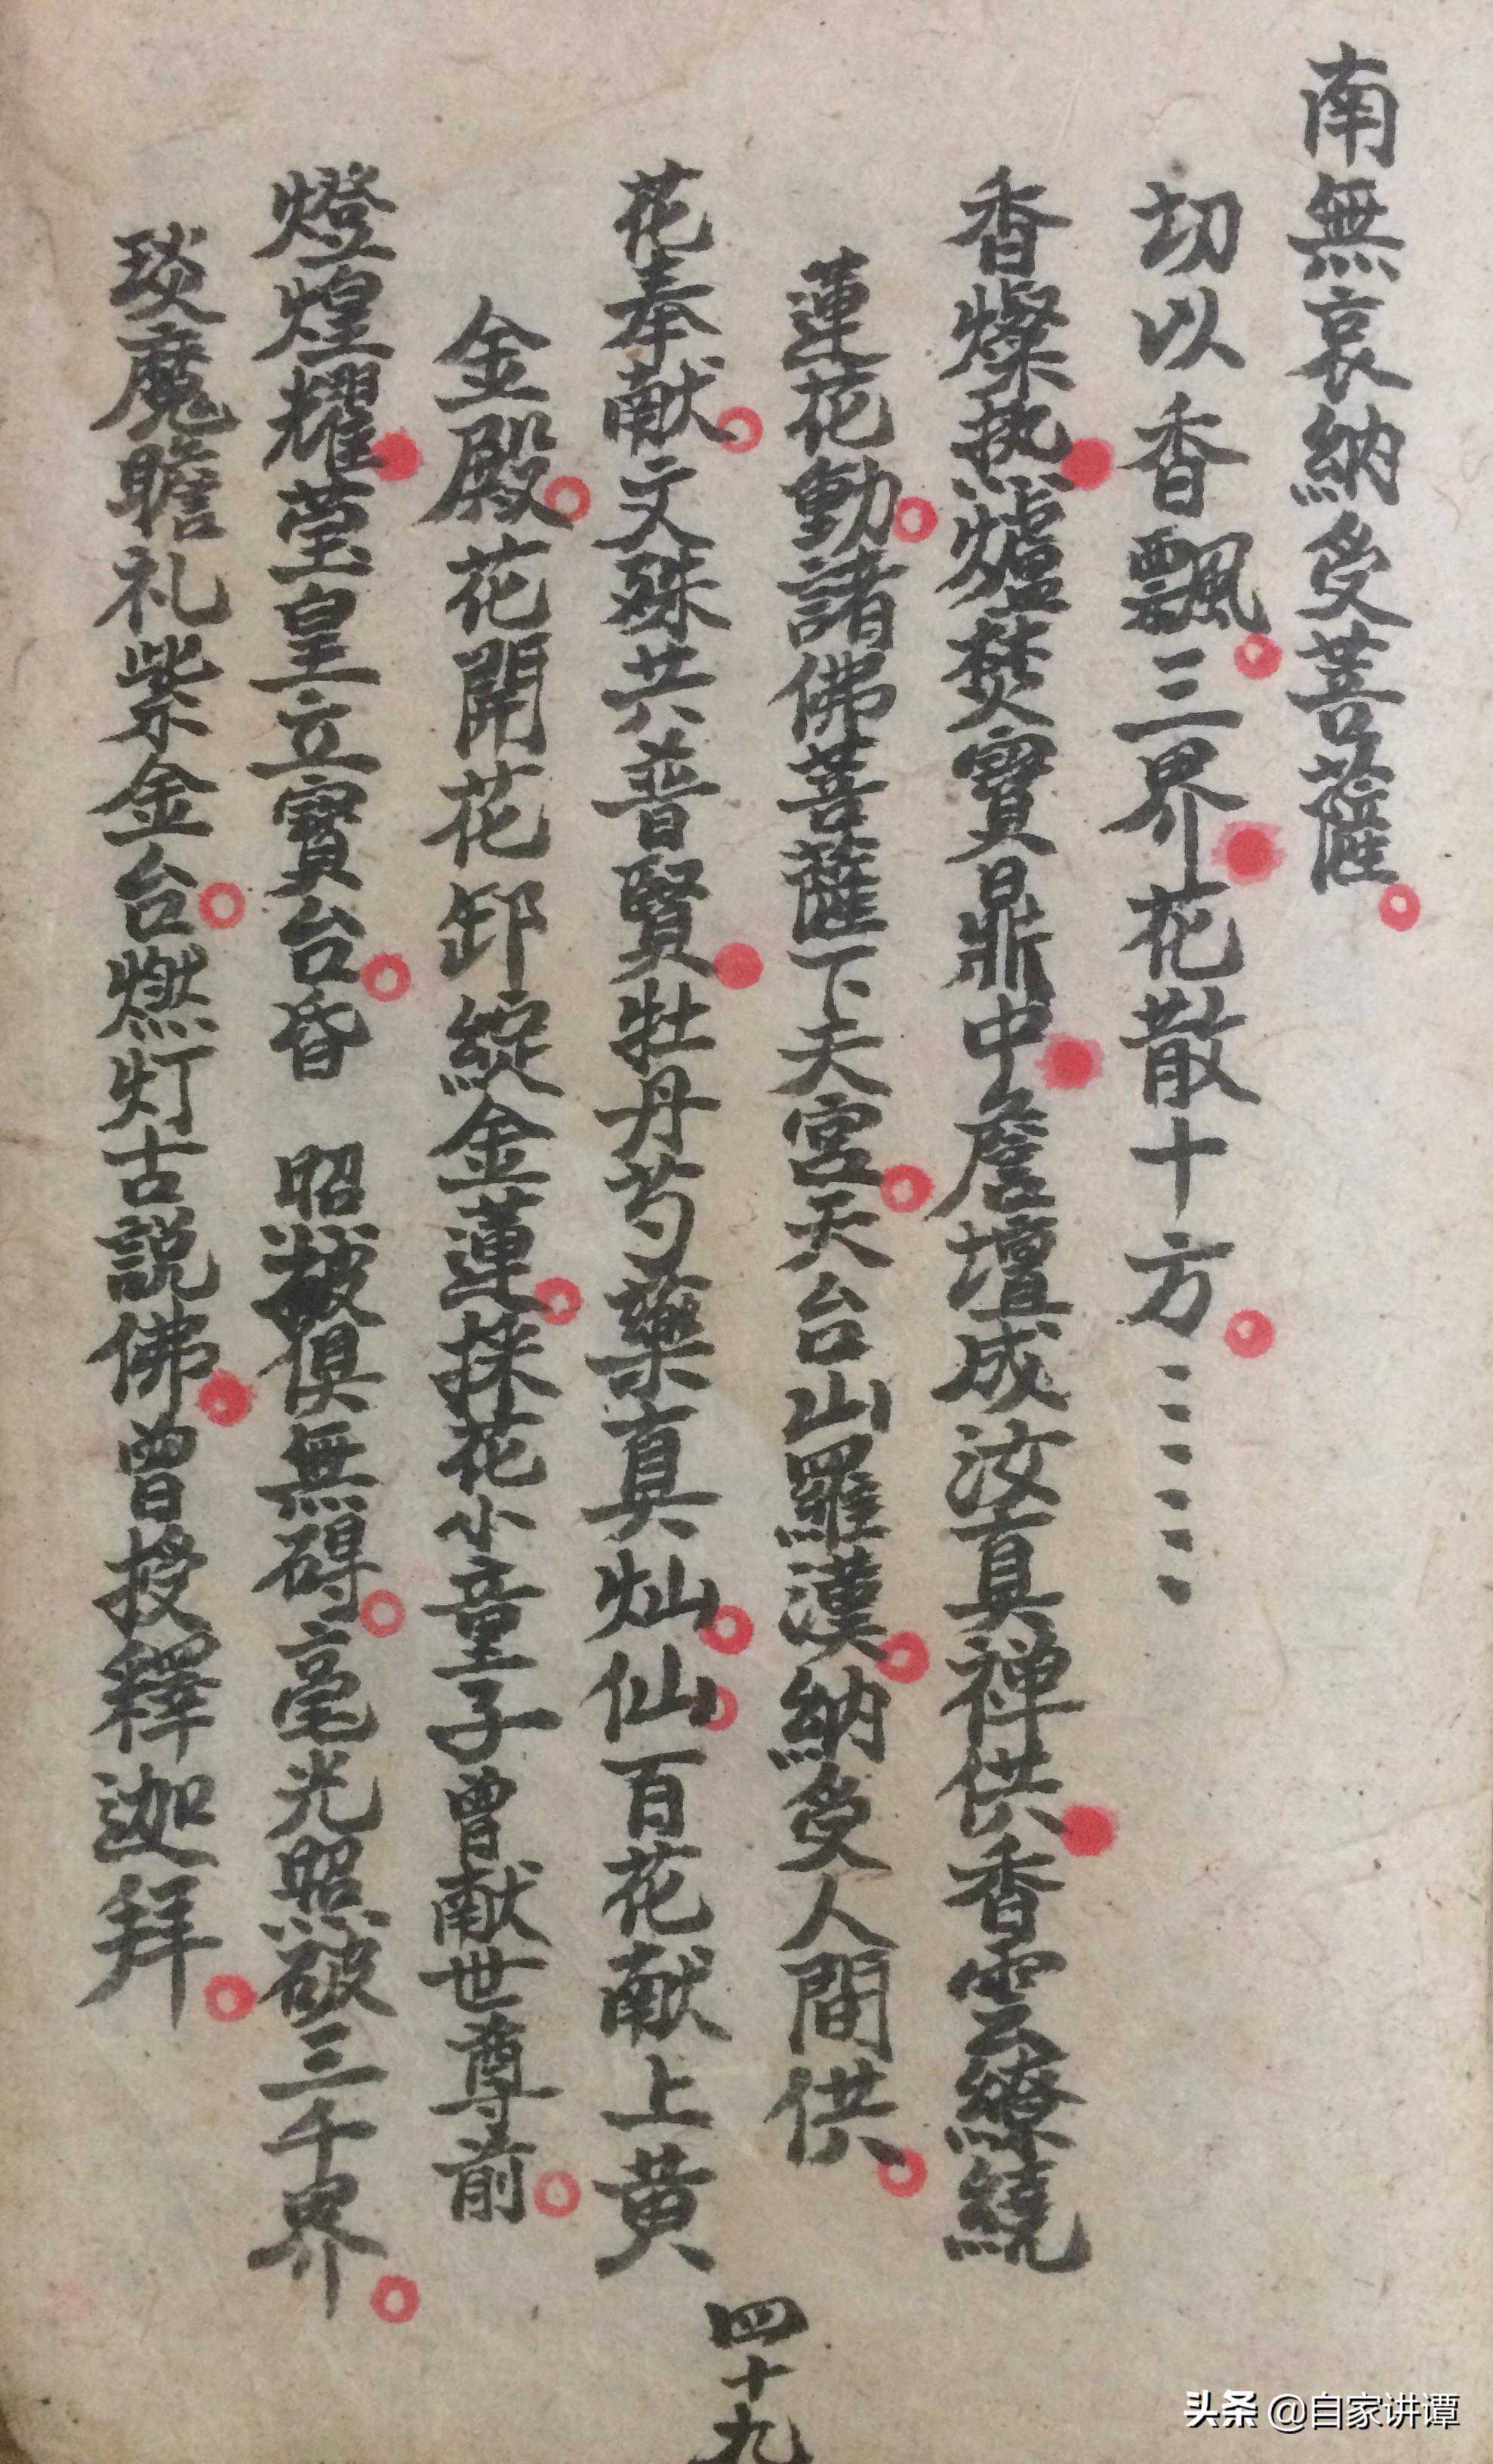 南無哀納受菩薩
切以香飄三界花散十方
香燦热爐焚寳鼎中詹壇成汝真禅供香雲繚繞
蓮花動諸佛菩薩下天宮天台山羅漢納受人間供
花奉献文殊共普賢牡丹芍藥真灿仙百花献上黄
金殿花開花卸綻金蓮採花小童子曾献世尊前
燈煌耀莹皇立寳台昏昭破俱無碍亳光照破三千界
琰魔瞻礼紫金台燃灯古説佛曾授釋迦拜
四十九
头条 @自家讲谭